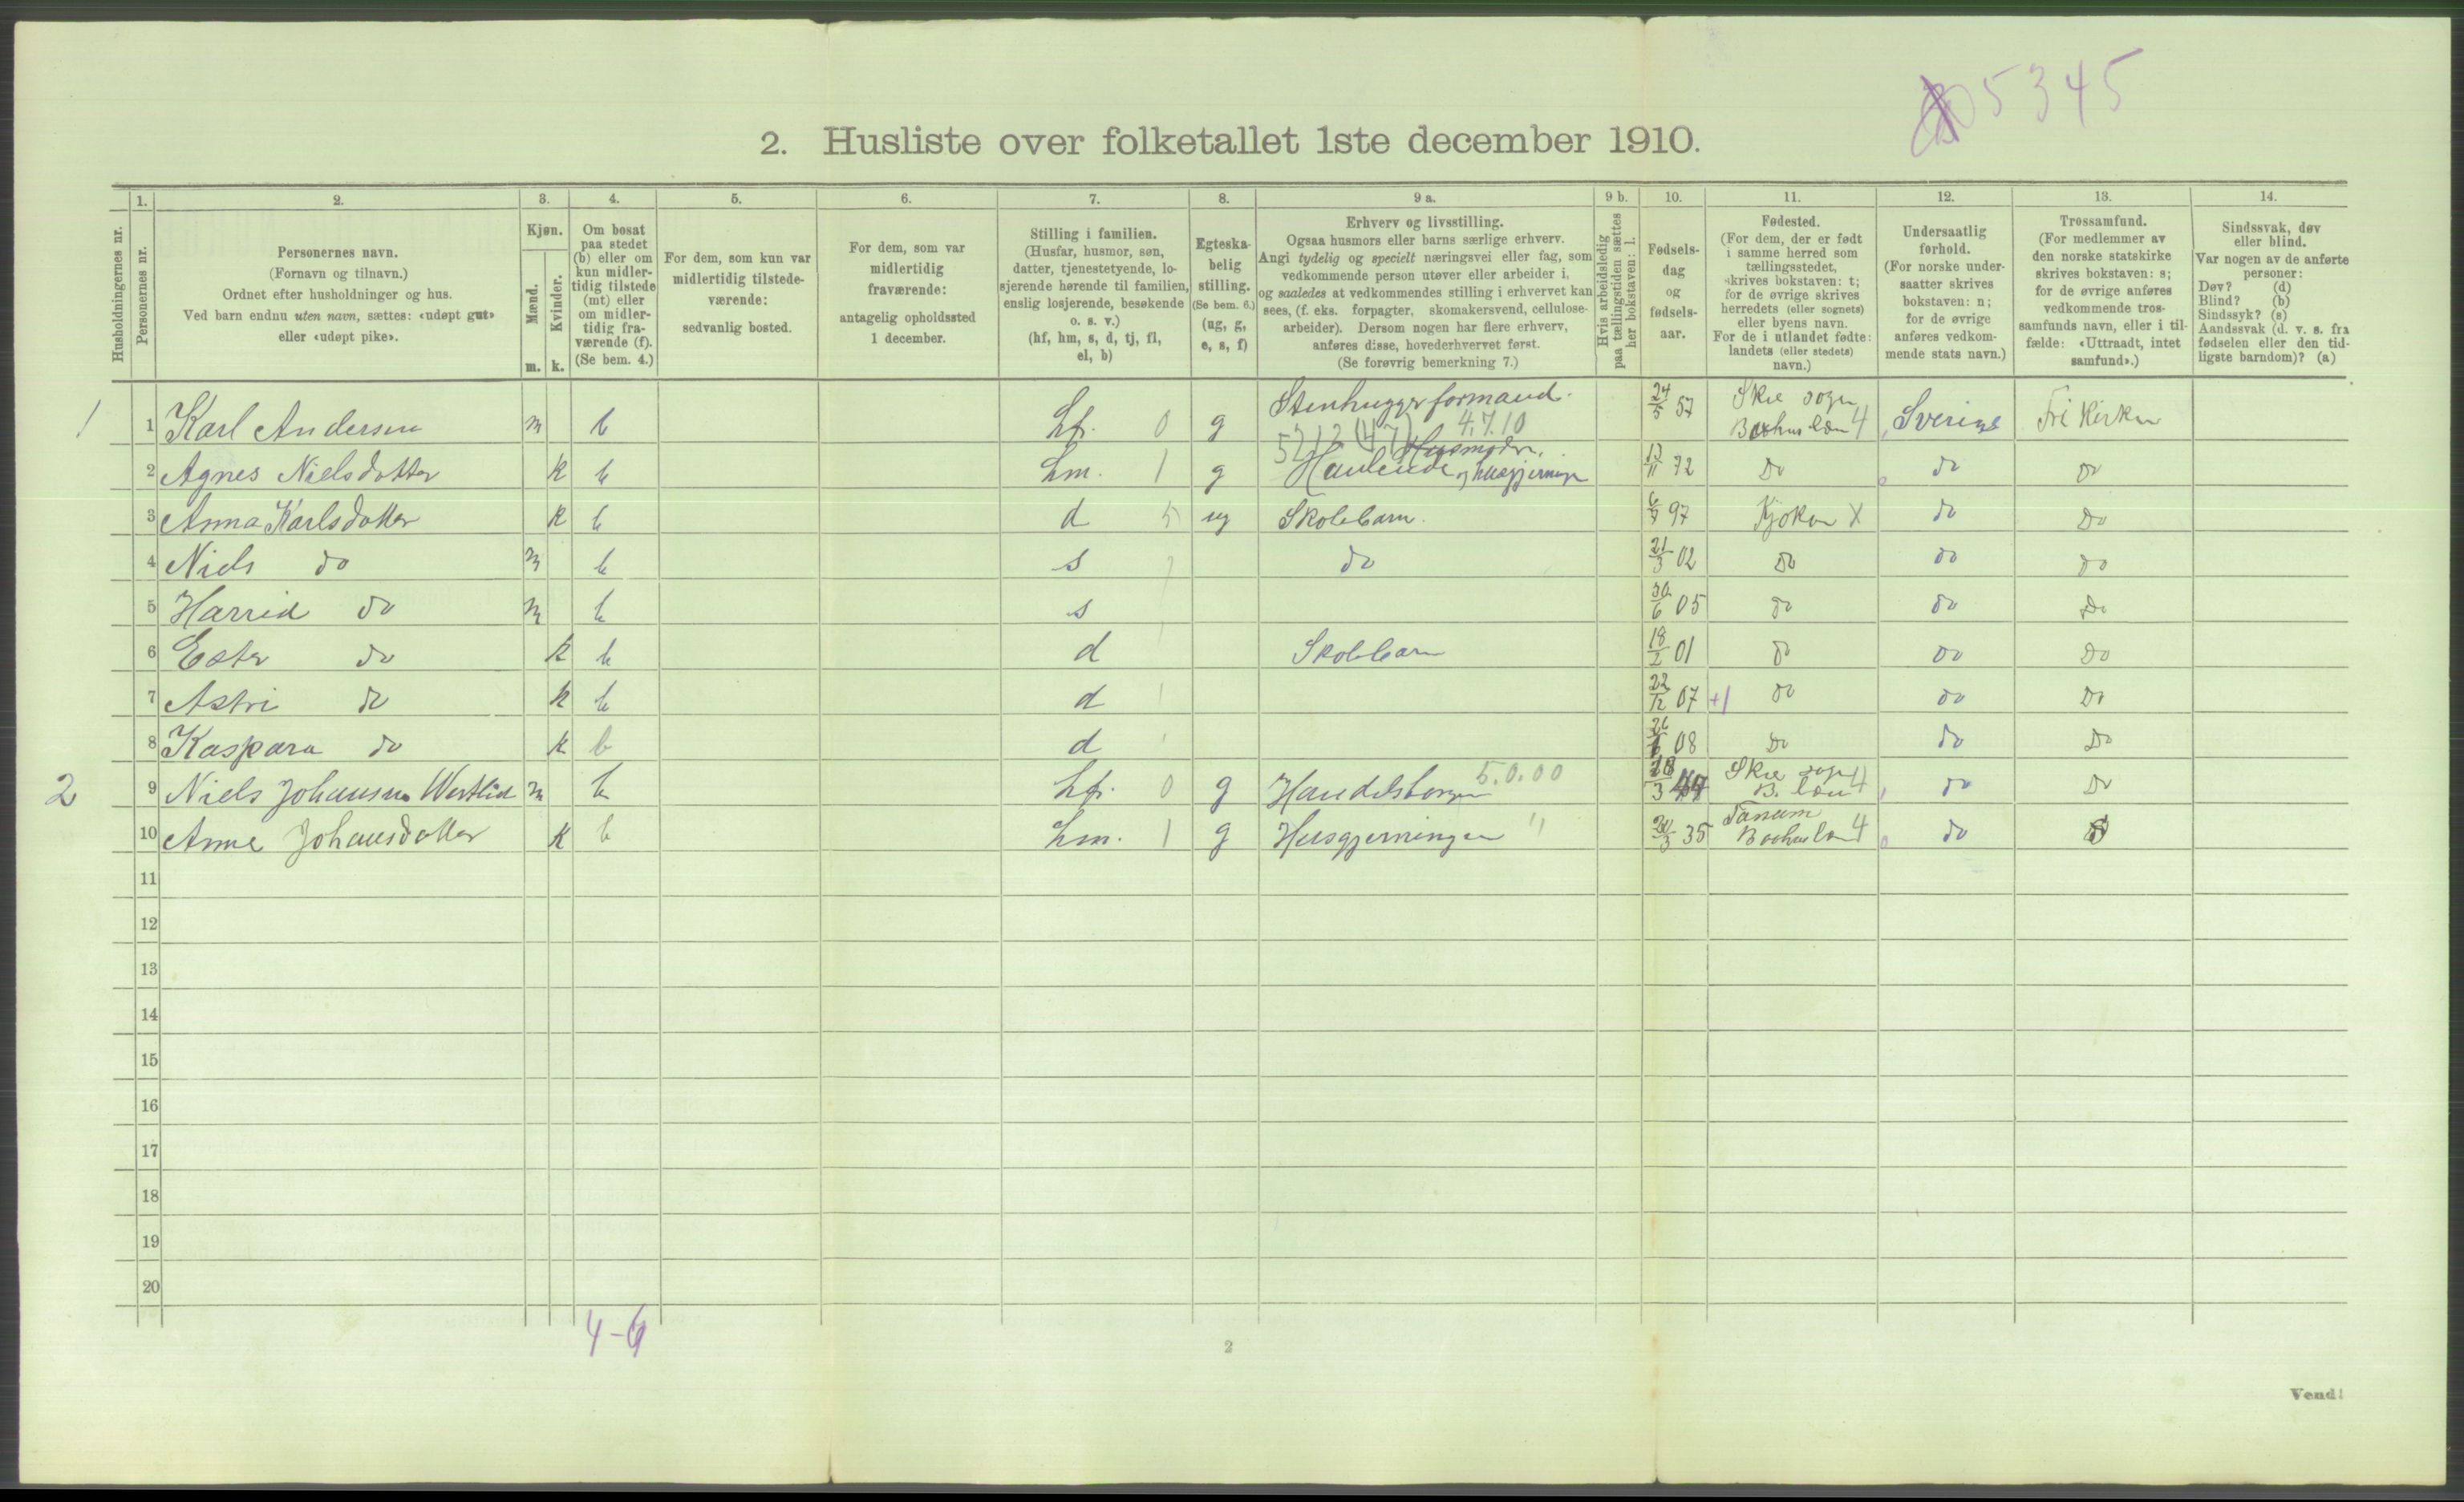 5345
2. Husliste over folketallet 1ste december 1910.
1. 2. 3. 4. 5. 6. 7. 8. 9 a. 9 b. 10. 11. 12. 13. 14.
Husholdningernes nr.
Personernes nr.
Personernes navn.
(Fornavn og tilnavn.)
Ordnet efter husholdninger og hus.
Ved barn endnu uten navn, sættes: «udøpt gut»
eller «udøpt pike».
Kjøn.
Mænd.
Kvinder.
m. k.
Om bosat
paa stedet
(b) eller om
kun midler-
tidig tilstede
(mt) eller
om midler-
tidig fra-
værende (f).
(Se bem. 4.)
For dem, som kun var
midlertidig tilstede-
værende:
sedvanlig bosted.
For dem, som var
midlertidig
fraværende:
antagelig opholdssted
1 december.
Stilling i familien.
(Husfar, husmor, søn,
datter, tjenestetyende, lo-
sjerende hørende til familien,
enslig losjerende, besøkende
o. s. v.)
(hf, hm, s, d, tj, fl,
el, b)
Egteska-
belig
stilling.
(Se bem. 6.)
(ug, g,
e, s, f)
Erhverv og livsstilling.
Ogsaa husmors eller barns særlige erhverv.
Angi tydelig og specielt næringsvei eller fag, som
vedkommende person utøver eller arbeider i,
og saaledes at vedkommendes stilling i erhvervet kan
sees, (f. eks. forpagter, skomakersvend, cellulose-
arbeider). Dersom nogen har flere erhverv,
anføres disse, hovederhvervet først.
(Se forøvrig bemerkning 7.)
Hvis arbeidsledig
paa tællingstiden sættes
her bokstaven: l.
Fødsels-
dag
og
fødsels-
aar.
Fødested.
(For dem, der er født
i samme herred som
tællingsstedet,
skrives bokstaven: t;
for de øvrige skrives
herredets (eller sognets)
eller byens navn.
For de i utlandet fødte:
landets (eller stedets)
navn.)
Undersaatlig
forhold.
(For norske under-
saatter skrives
bokstaven: n;
for de øvrige
anføres vedkom-
mende stats navn.)
Trossamfund.
(For medlemmer av
den norske statskirke
skrives bokstaven: s;
for de øvrige anføres
vedkommende tros-
samfunds navn, eller i til-
fælde: «Uttraadt, intet
samfund».)
Sindssvak, døv
eller blind.
Var nogen av de anførte
personer:
Døv? (d)
Blind? (b)
Sindssyk? (s)
Aandssvak (d. v. s. fra
fødselen eller den tid-
ligste barndom)? (a)
1 1 Karl Andersen m b hf. 0 g Stenhuggerformand. 4.7.10 24/5 57 Skee sogn Bohus len 4 Sverige Fri Kirken
2 Agnes Nielsdotter k b hm. 1 g Husmoder. og husgjerninger 13/11 72 Do do Do
3 Anna Karlsdotter k b d 5 ug Skolebarn. 6/7 97 Kjøken X do Do
4 Niels do m b s do 21/3 02 Do do Do
5 Harrid do m b s 30/6 05 do do Do
6 Ester do k b d Skolebarn 18/2 01 do do Do
7 Astri do k b d 1 22/12 07 +1 do do Do
8 Kaspara do k b d 26/6 08 Do do Do
2 9 Niels Johansen Westlid m b hf. 0 g 5.0.00 Skee sogn B. len 4 do Do
10 Anne Johansdotter k b hm. 1 g Husgjerninger " 35 Tanum Bohus len 4 do
11
12
13
14
15
16
17
18
19
20
4-6
2
Vend!